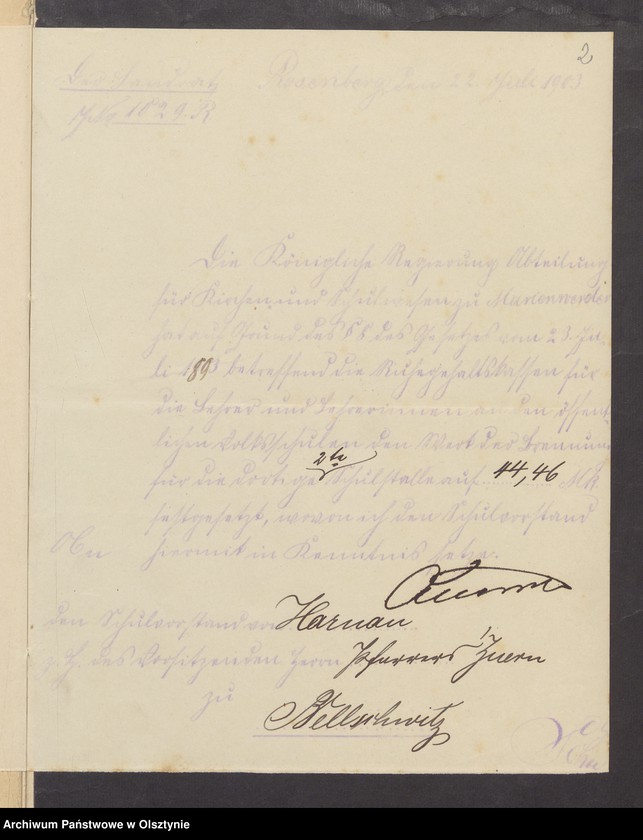 2
Der Landrat Rosenberg, den 22. Juli 1903
J. No 1029. R.
Die Königliche Regierung Abteilung
für Kirchen und Schulwesen zu Marienwerder
hat auf Grund des § 8 des Gesetzes vom 23. Ju-
li 1893 betreffend die Ruhegehaltskassen für
die Lehrer und Lehrerinnen an den öffent-
lichen Volksschulen den Wert der
für die dortige 2te Schulstelle auf 44,46 Mk
festgesetzt, wovon ich den Schulvorstand
An hiermit in Kenntnis setze.
den Schulvorstand von Harnau
z. H. des Vorsitzenden Herrn Pfarrers
zu
Bellschwitz
Archiwum Państwowe w Olsztynie